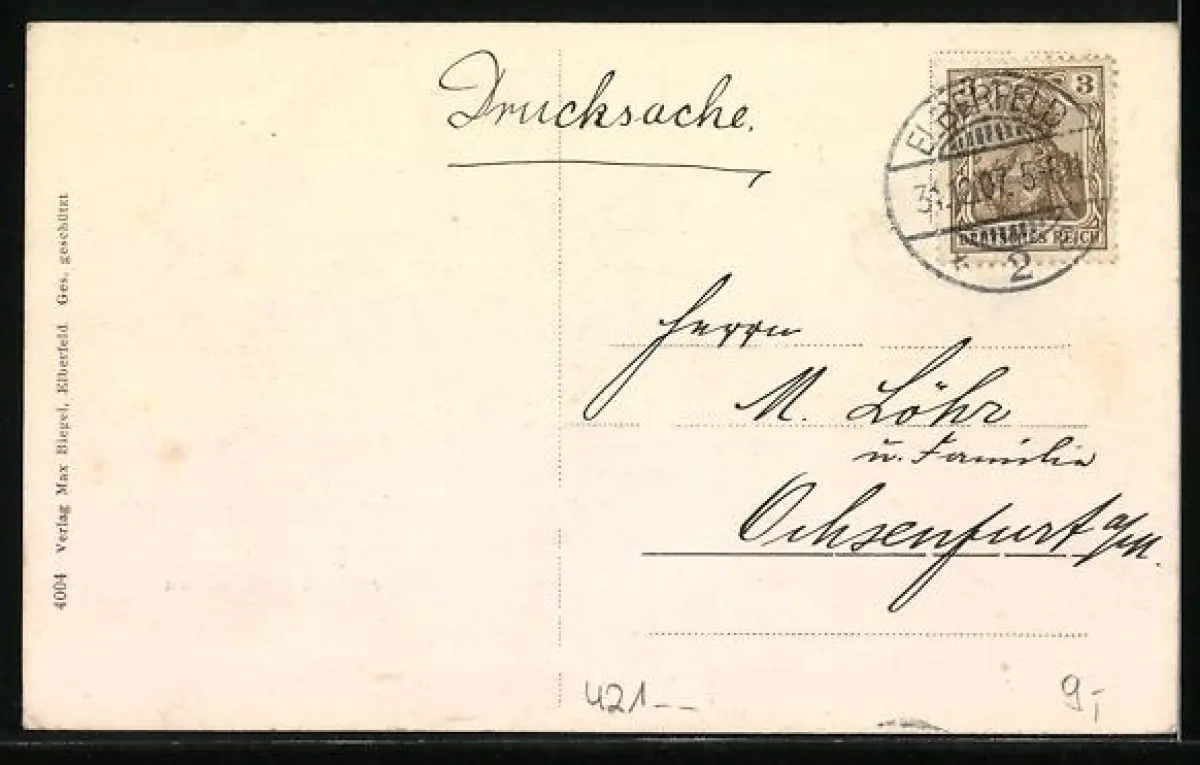 Drucksache.
3
ELBERFELD
31.12.07. 5-6N
DEUTSCHES REICH
* 2
Herrn
M. Löhr
u. Familie
Ochsenfurt a/M.
4004 Verlag Max Biegel, Elberfeld Ges. geschützt
421--
9,-